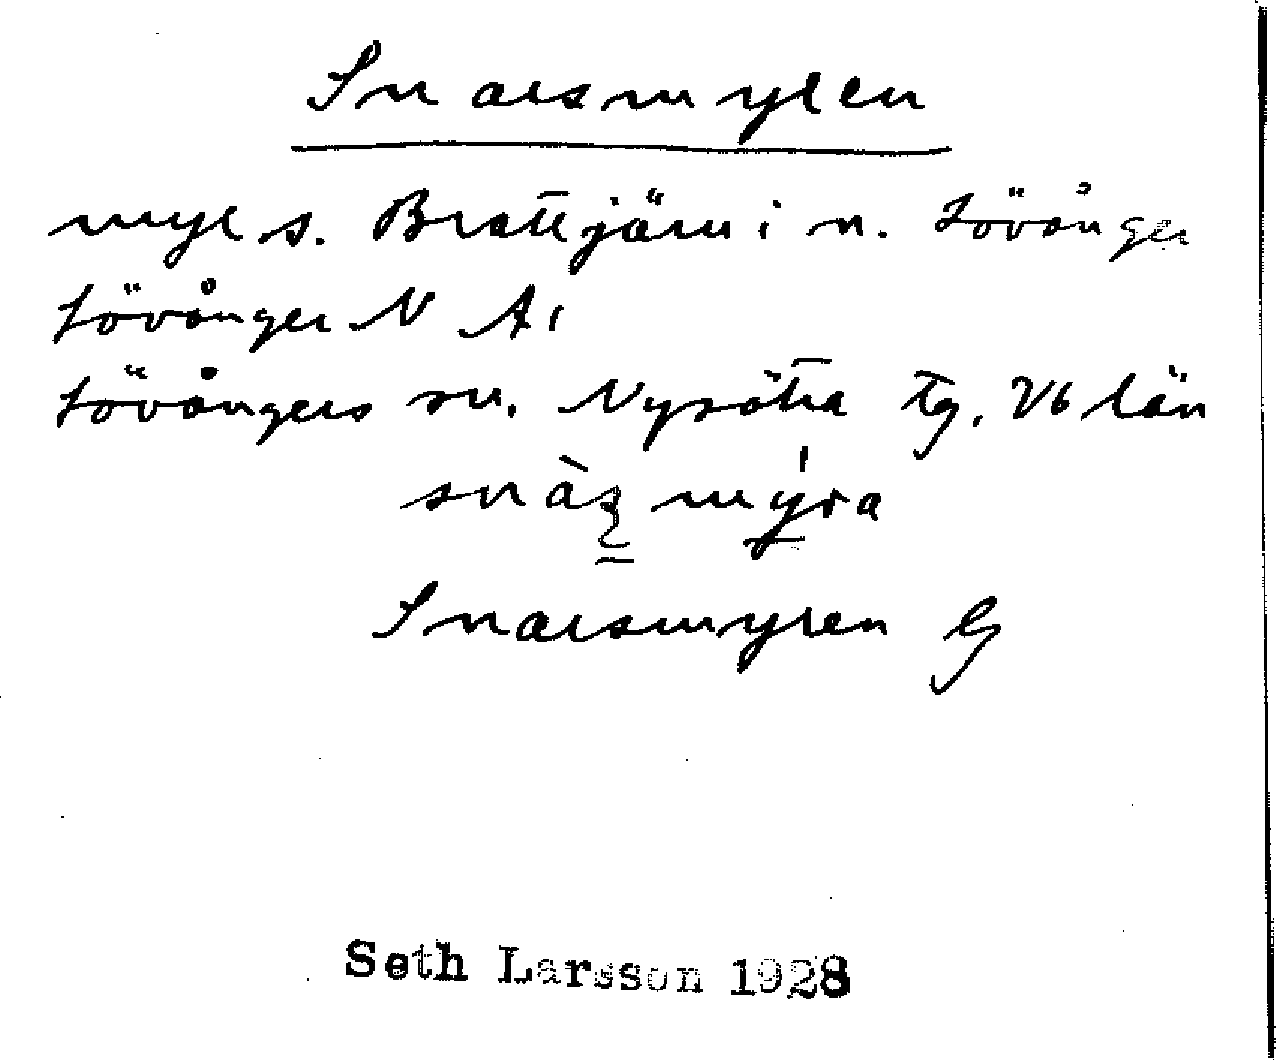 Snarsmyren
myr s. Brattjärn i n. Lövånger
Lövånger N A1
Lövångers sn. Nysätra tg. Vb län
snàʂ mýra
Snarsmyren G
Seth Larsson 1928